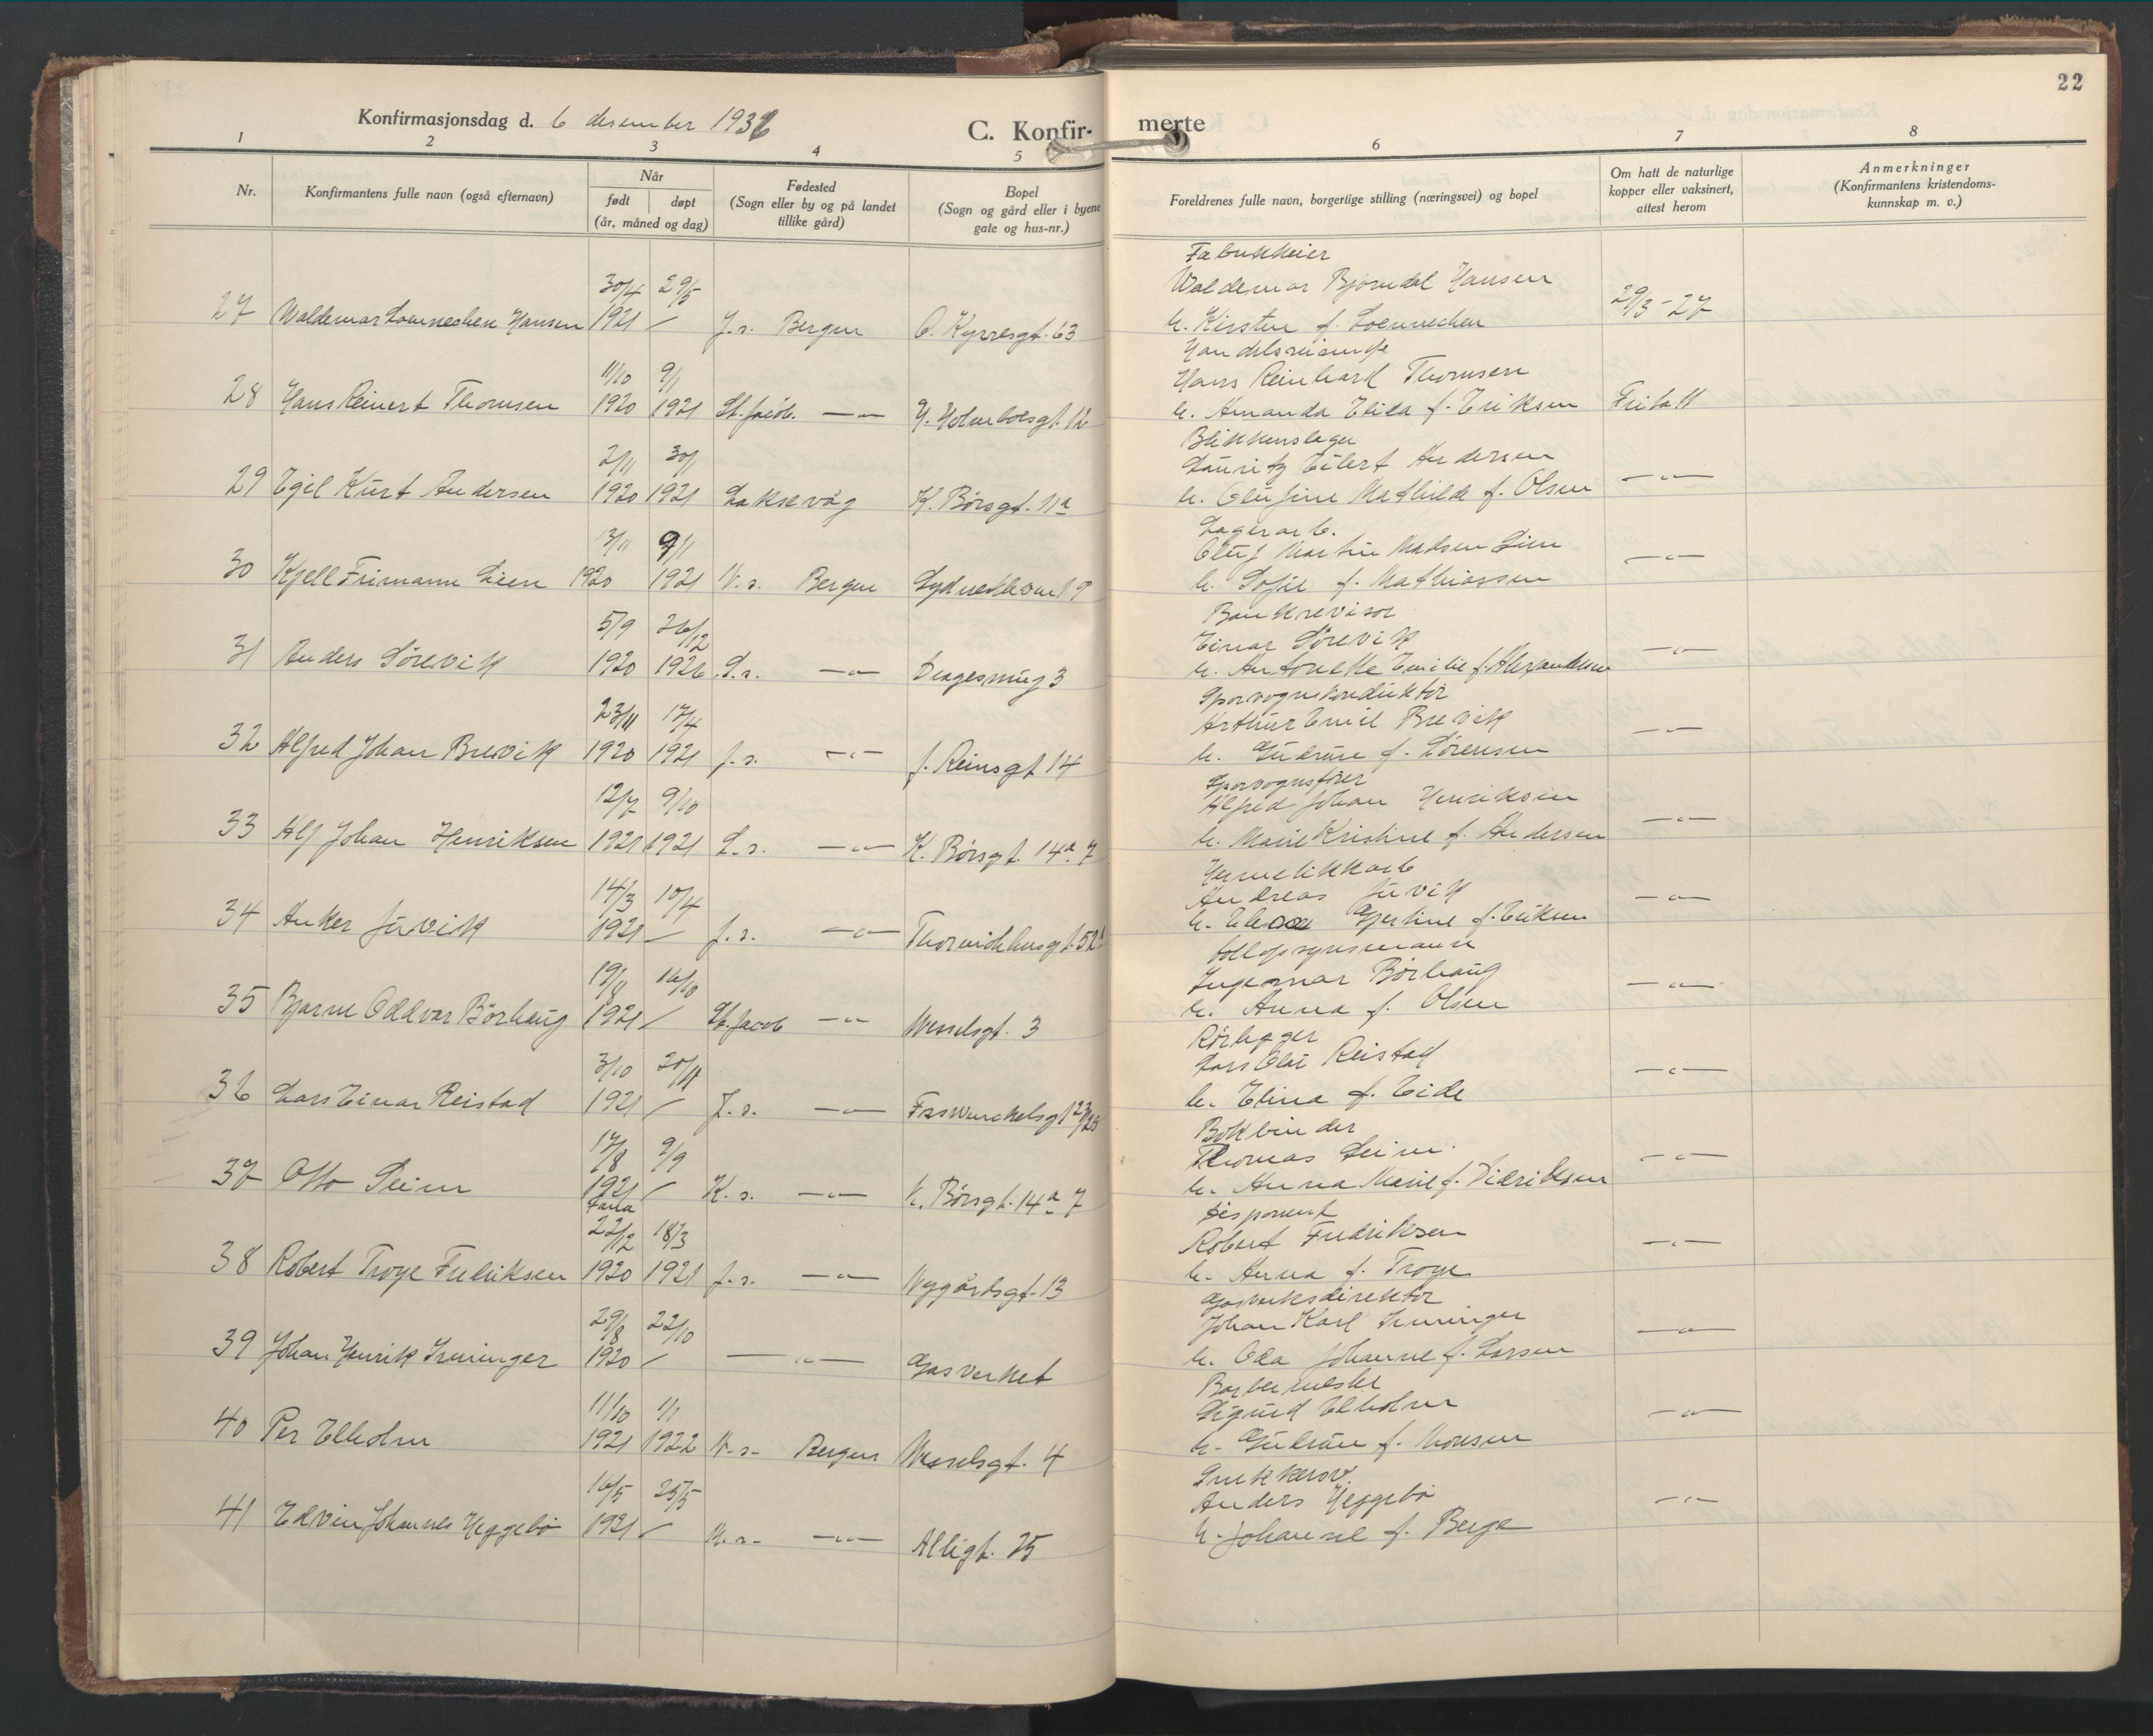 22
Konfirmasjonsdag d. 6 desember 1936
C. Konfir-
merte
1 2 3 4 5 6 7 8
Nr.
Konfirmantens fulle navn (også efternavn)
Når
født døpt
(år, måned og dag)
Fødested
(Sogn eller by og på landet
tillike gård)
Bopel
(Sogn og gård eller i byene
gate og hus-nr.)
Foreldrenes fulle navn, borgerlige stilling (næringsvei) og bopel
Om hatt de naturlige
kopper eller vaksinert,
attest herom
Anmerkninger
(Konfirmantens kristendoms-
kunnskap m. v.)
Fabrikkeier
30/4 29/5 Waldemar Bjørndal Hansen 29/3-27
27 Waldemar Loennechen Hansen 1921 / J.s. Bergen O. Kyrresgt. 63 h. Kirsten f. Loennechen
Handelsreisende
11/10 9/1 Hans Reinhard Thomsen
28 Hans Reinert Thomsen 1920 1921 St. Jacob. —"— 12 h. Amanda Elida f. Eriksen Frita 11
Blikkenslager
2/11 30/1 Lauritz Eilert Andersen
29 Egil Kurt Andersen 1920 1921 Laksevåg K. Børsgt. 11a h. Olufine Mathilde f. Olsen —"—
Lagerarb.
13/11 9/1 Oluf Martin Madsen Lien
30 Kjell Frimann Lien 1920 1921 N.s. Bergen h. Sofie f. Mathiassen —"—
Bankrevisor
5/9 26/12 Einar Sörevik
31 Anders Sörevik 1920 1926 —"— Dragesmug 3 h. Antonette Emilie f. Alexandersen —"—
Sporvognskonduktör
23/11 17/4 Arthur Emil Brevik
32 Alfred Johan Brevik 1920 1921 J.s. —"— J. Reinsgt 14 h. Gudrun f. Sörensen —"—
Sporvognsförer
12/7 9/10 Alfred Johan Henriksen
33 Alf Johan Henriksen 1921 1921 —"— K. Börsgt. 14a 7 h. Marie Kristine f. Andersen —"—
Hermetikkarb
14/3 10/4 Andreas Juvik
34 Anker Juvik 1921 / J.s. —"— h. Gjertine f. Eriksen —"—
Tollopsynsmann
19/8 16/10 Ingemar Börhaug
35 Bjarne Oddvar Börhaug 1921 / St. Jacob —"— Wesselsgt. 3 h. Anna f. Olsen —"—
Rörlegger
3/10 20/11 Lars Olai Reistad
36 Lars Einar Reistad 1921 / J.s. —"— h. Elina f. Eide —"—
Bokbinder
17/8 9/9 Thomas Seim
37 Otto Seim 1921 / K.s. —"— K. Börsgt. 14a 7 h. Anna Marie f. Didriksen —"—
Fana
Disponent
22/12 18/3 Robert Fredriksen
38 Robert Troye Fredriksen 1920 1921 J.s. —"— Nygårdsgt. 13 h. Anna f. Troye —"—
Gasverksdirektör
29/8 22/10 Johan Karl Irminger
39 Johan Henrik Irminger 1920 / —"— Gasverket h. Oda Johanne f. Larsen —"—
Barbermester
11/10 1/1 Sigurd Elholm
40 Per Elholm 1921 1922 N.s. Bergen Wesselsgt. 4 h. Gudrun f. Monsen —"—
Snekkersv.
16/5 25/5 Anders Heggebö
41 Edvin Johannes Heggebö 1921 / N.s. —"— Alligt. 25 h. Johanne f. Berge —"—